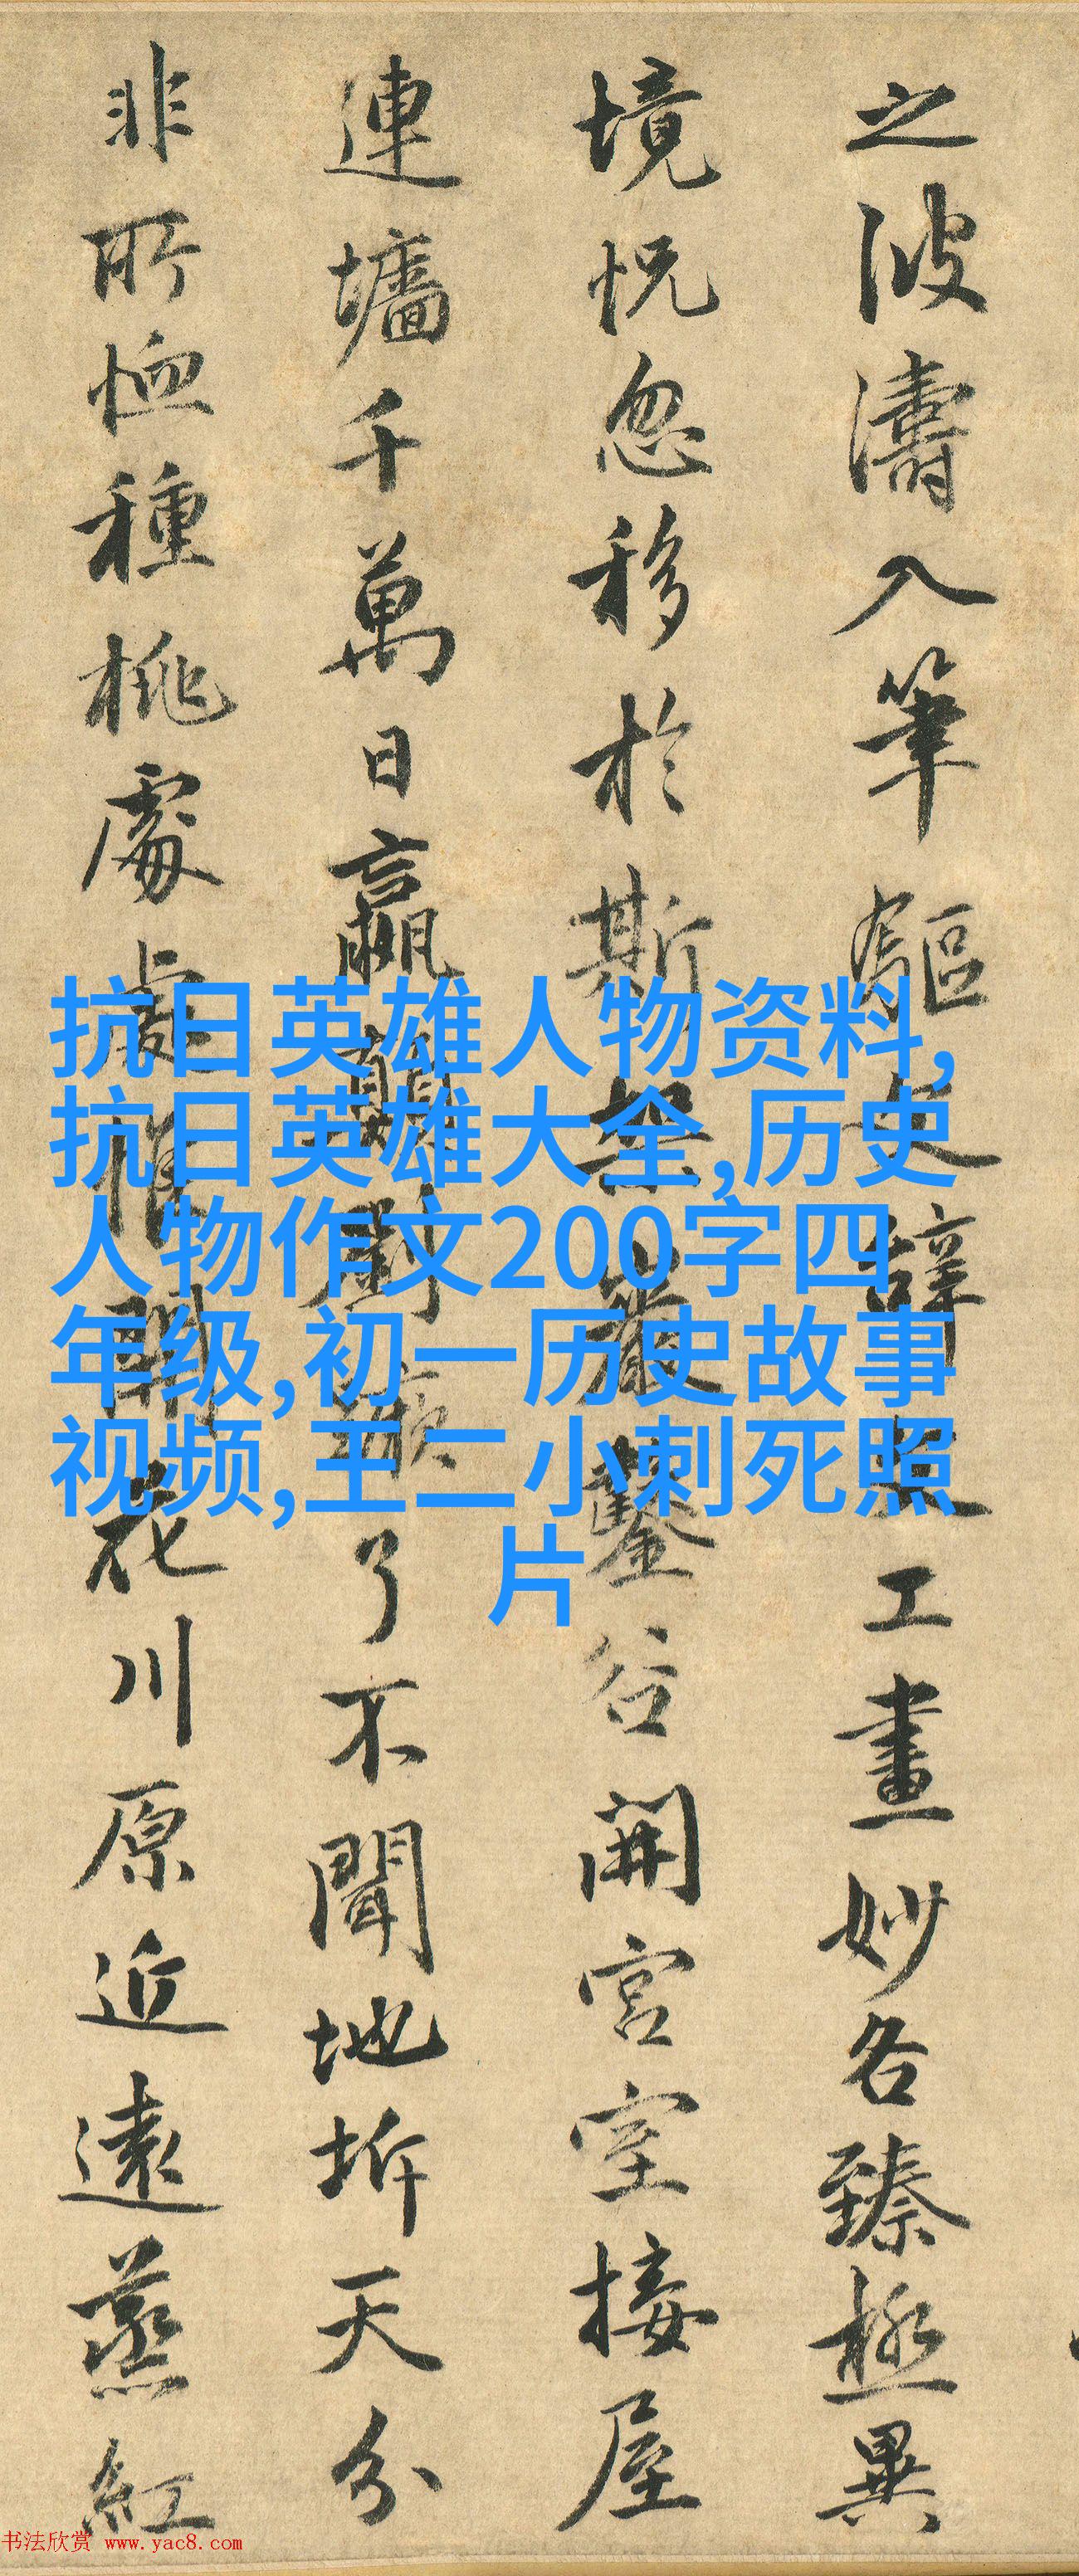 之波濤入筆驅文辭文工畫妙各臻極異
境怳忽移於斯架巖鑿谷開宮室接屋
連墻千萬日嬴顛劉蹶了不聞地坼天分
非所恤種桃處處惟開花川原近遠蒸紅
抗日英雄人物资料,
抗日英雄大全,历史
人物作文200字四
年级,初一历史故事
视频,王二小刺死照
片
书法欣赏 www.yac8.com